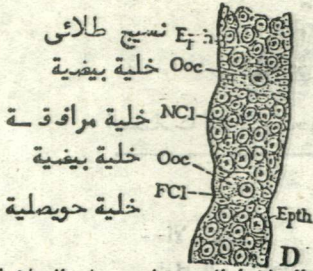 نسيج طلائى Epth
خلية بيضية Ooc
خلية مرافقة NCl
خلية بيضية Ooc
خلية حويصلية FCl
Epth
D